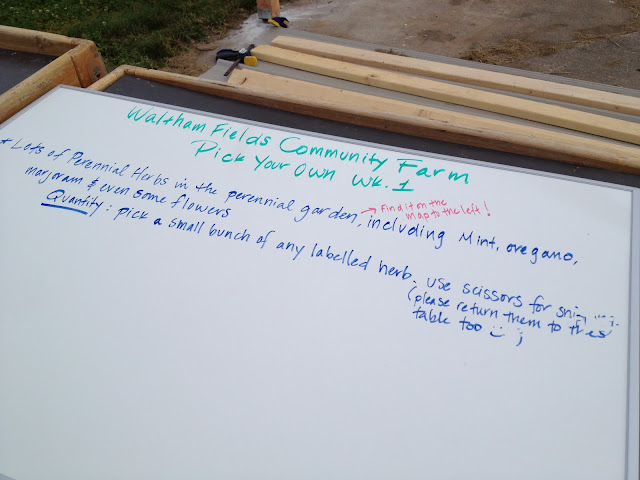 Waltham Fields Community Farm
Pick Your Own Wk. 1
* Lots of Perennial Herbs in the perennial garden, including Mint, oregano,
→ Find it on the
map to the left!
marjoram & even some flowers
Quantity: pick a small bunch of any labelled herb. Use scissors for
(please return them to
table too :)